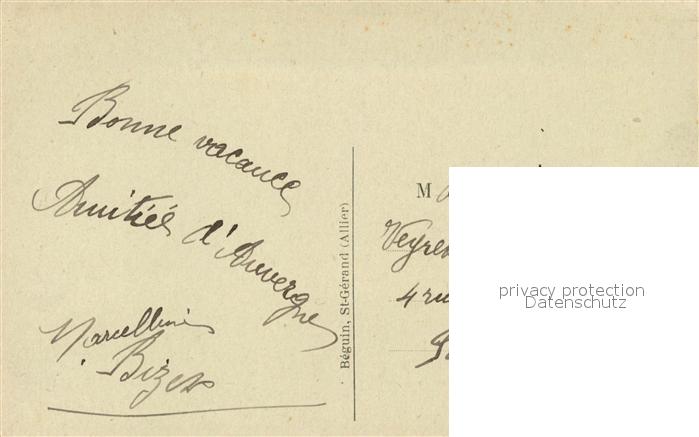 Bonne vacance
Amitiés d'Auvergne
Marcelline
Bizet
Béguin, St-Gérand (Allier)
M
4 ru
privacy protection
Datenschutz